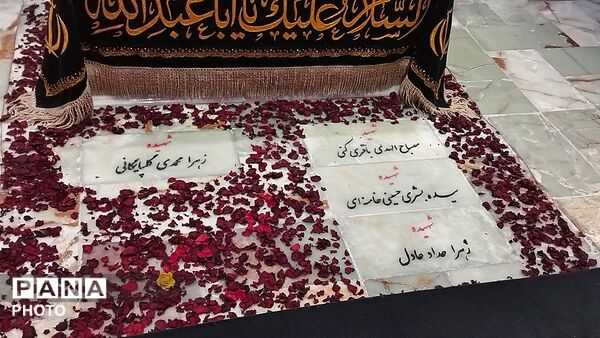 السلام علیک یا اباعبدالله
شهیده
زهرا محمدی گلپایگانی
شهید
مصباح الهدی باقری کنی
شهیده
سیده بشری حسینی خامنه‌ای
شهیده
زهرا حداد عادل
PANA
PHOTO